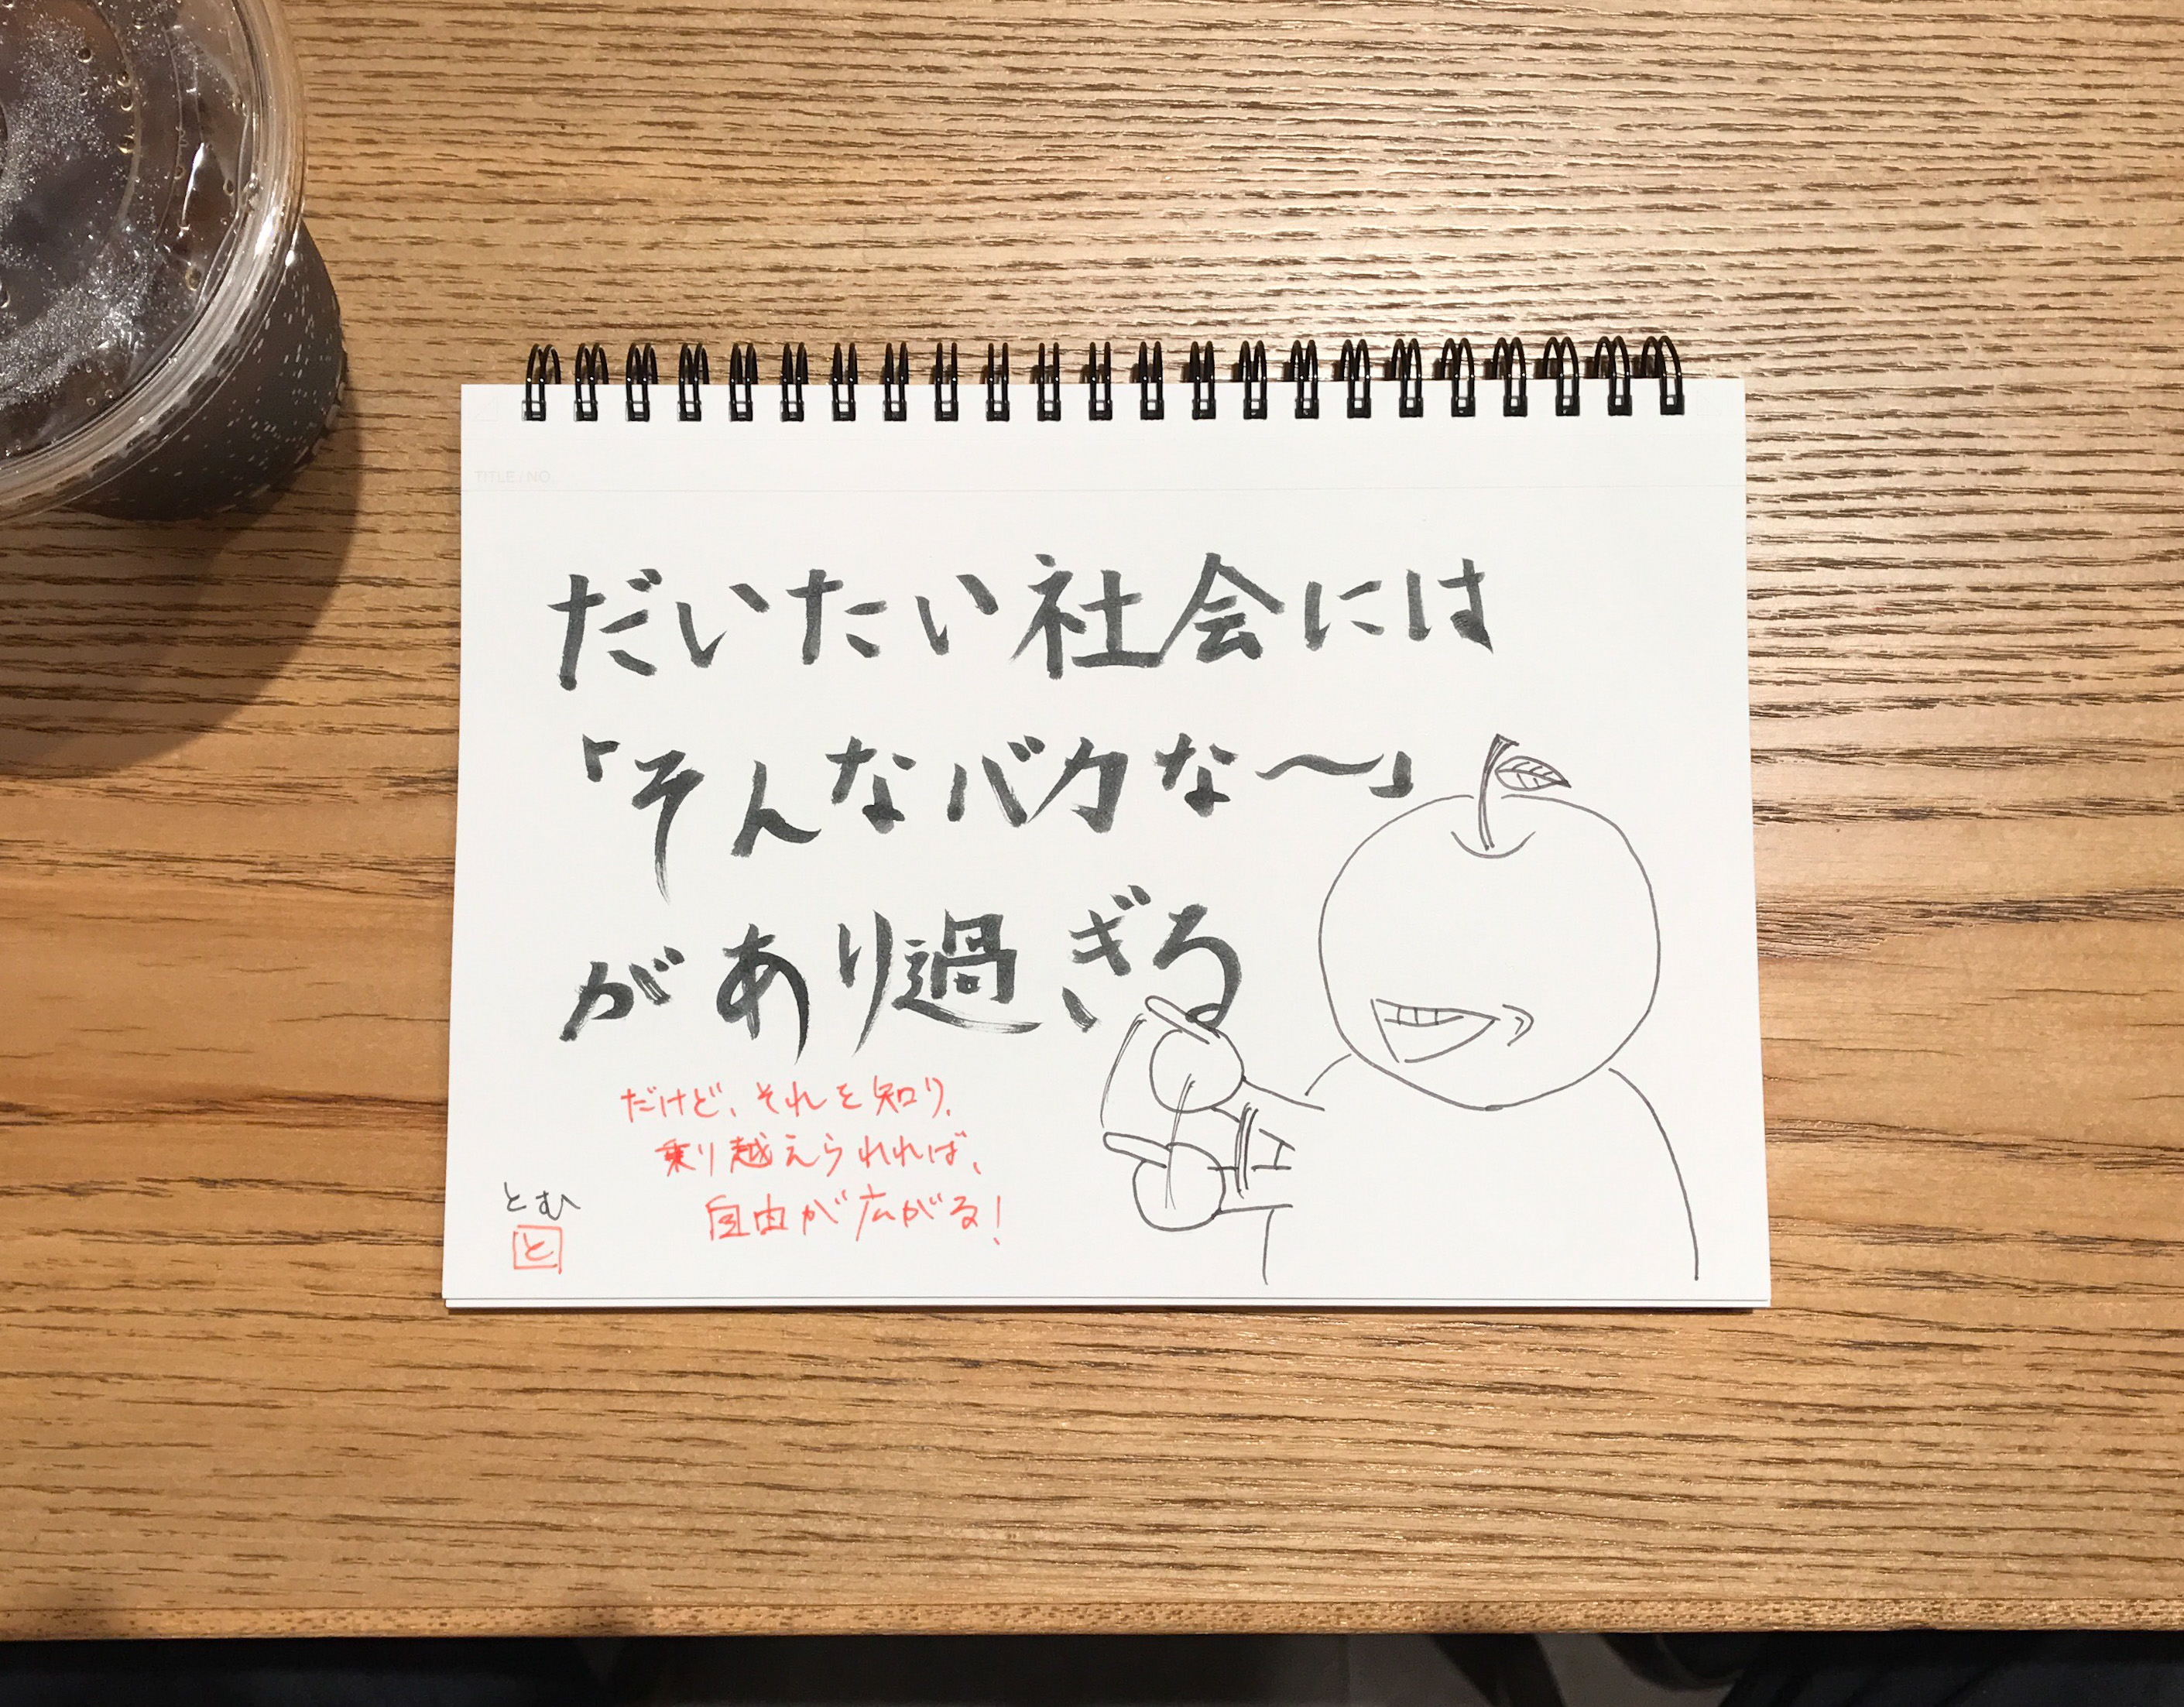 TITLE / NO.
だいたい社会には
「そんなバカな〜」
があり過ぎる
だけど、それを知り、
乗り越えられれば、
自由が広がる!
とむ
と